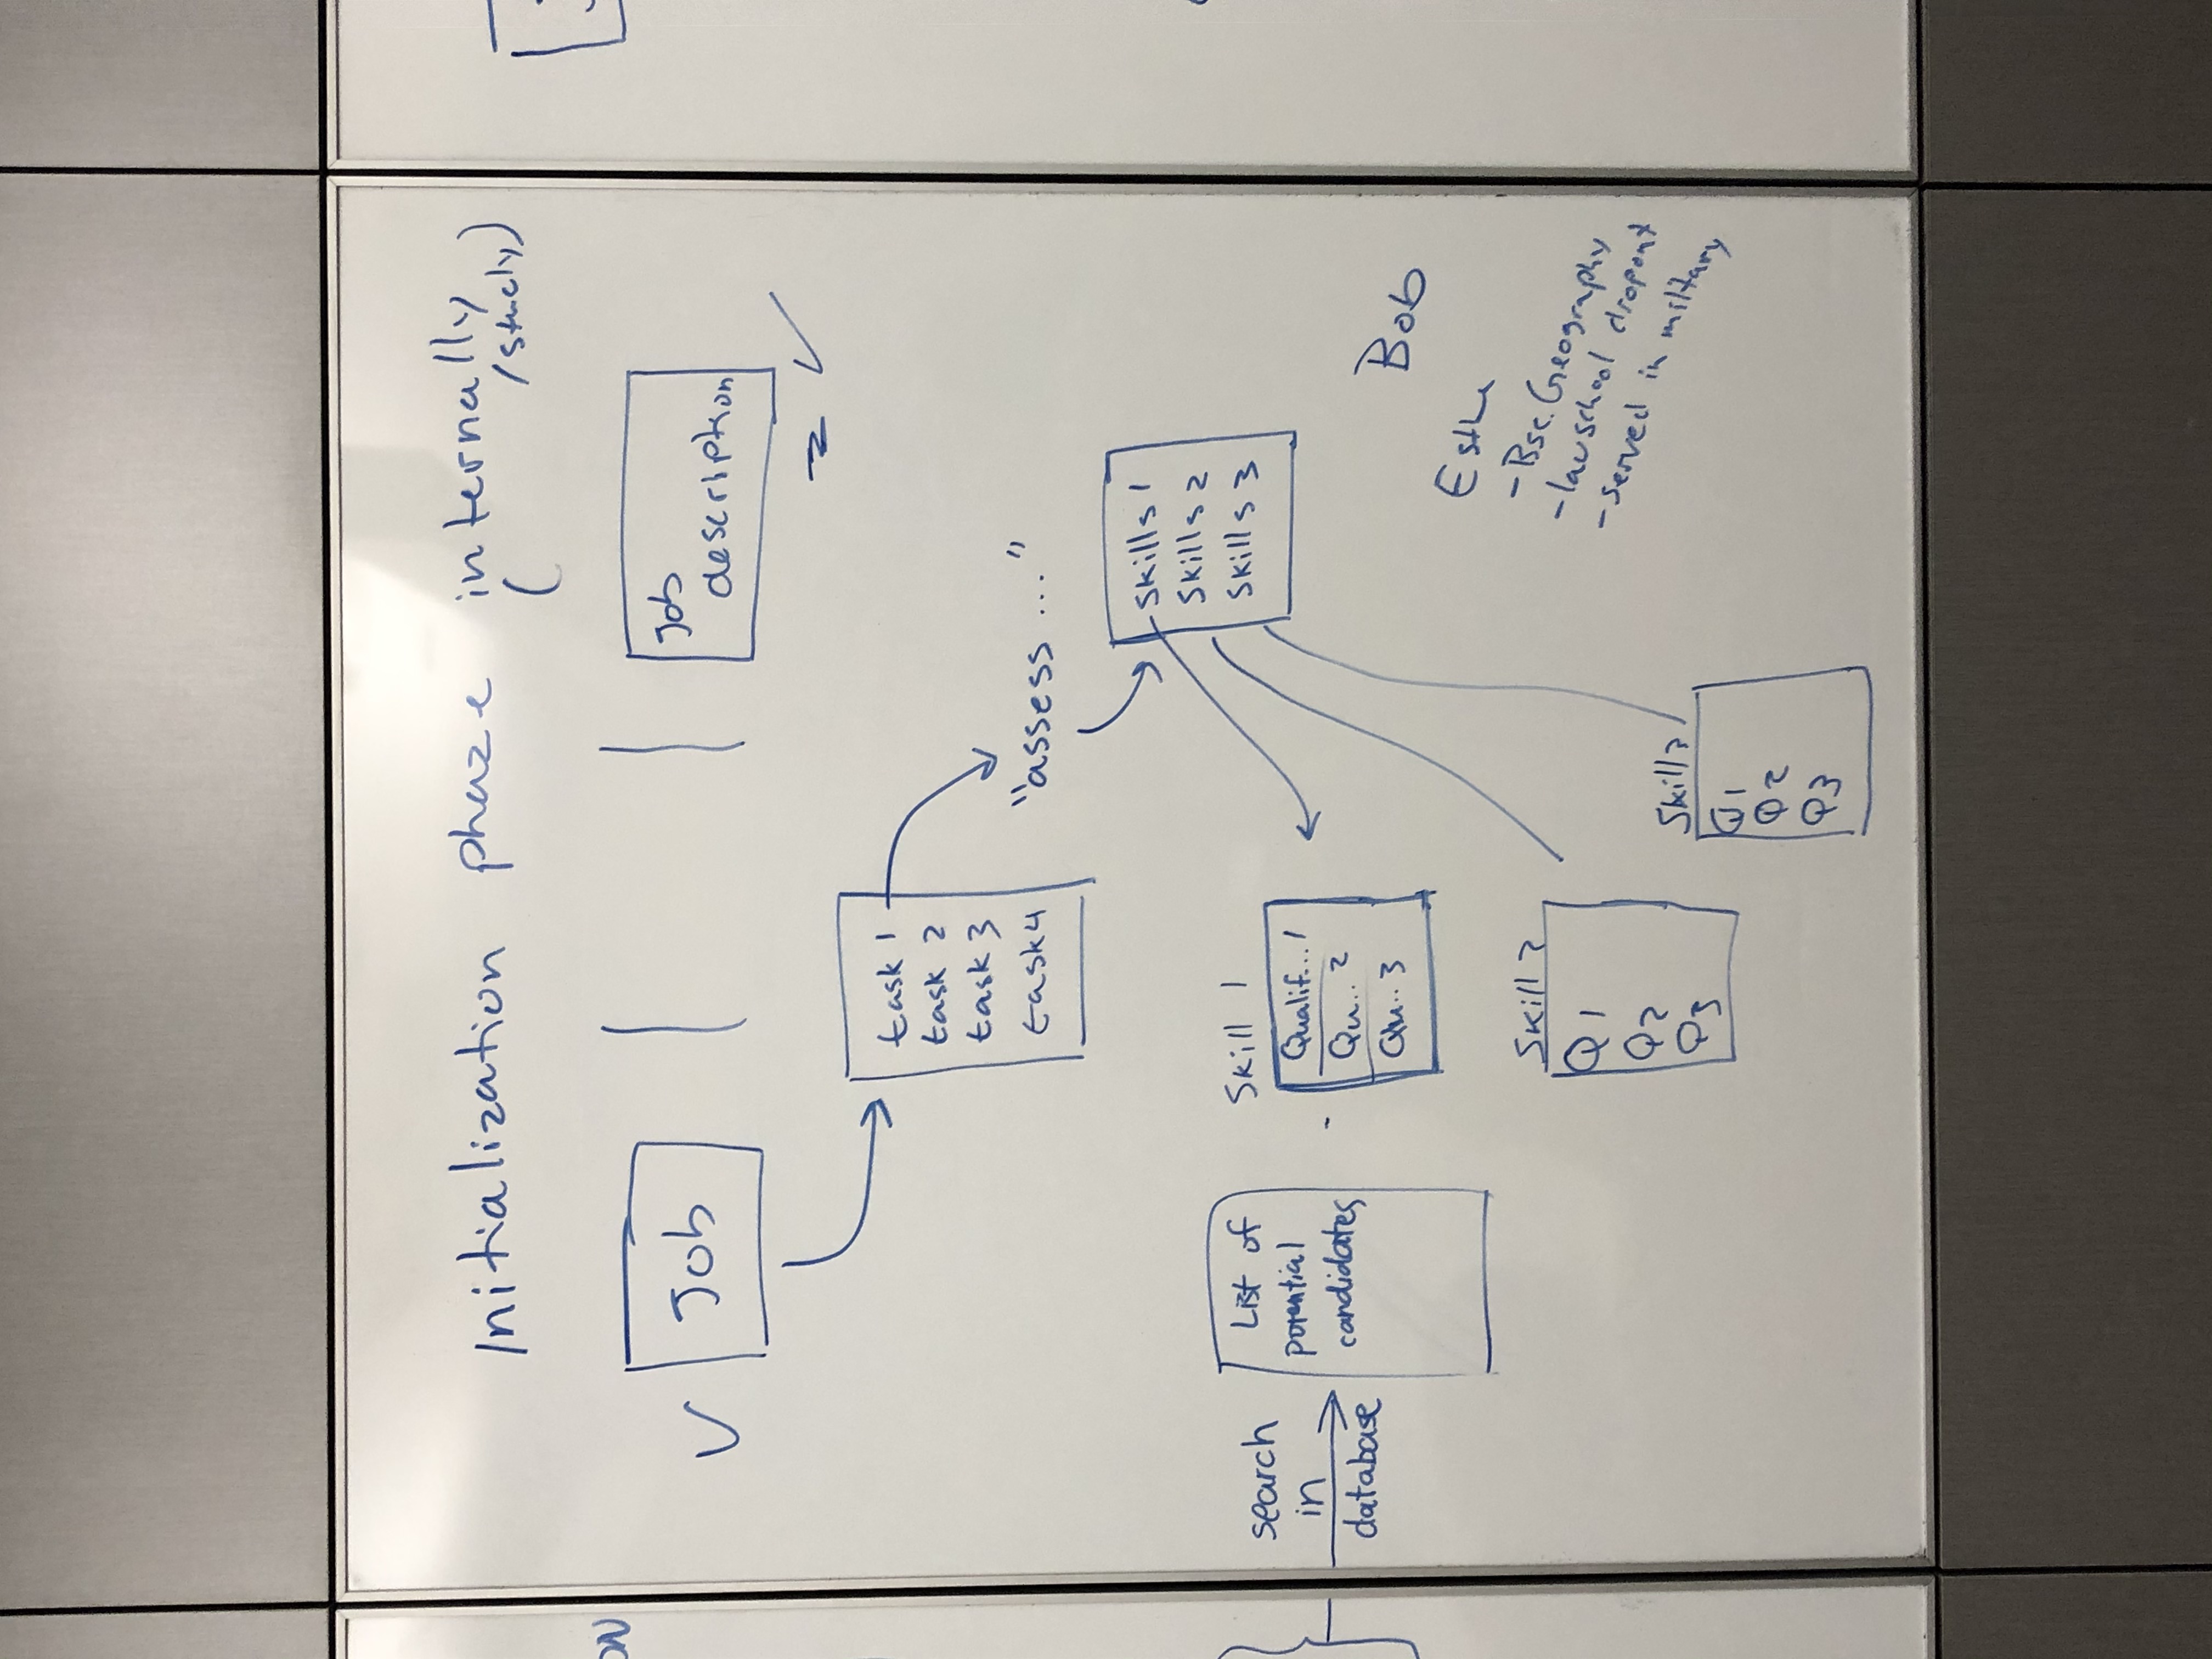 Initialization phaze internally
(      /study)
ON
Job
Job
description
task 1
task 2
task 3
task 4
"assess ..."
skills 1
skills 2
skills 3
search
in
database
List of
potential
candidates
Skill 1
Qualif...1
Qu...2
Qu..3
Skill 2
Q1
Q2
Q3
Skill 3
Q1
Q2
Q3
Bob
- Bsc. Geography
- lawschool dropout
- served in military